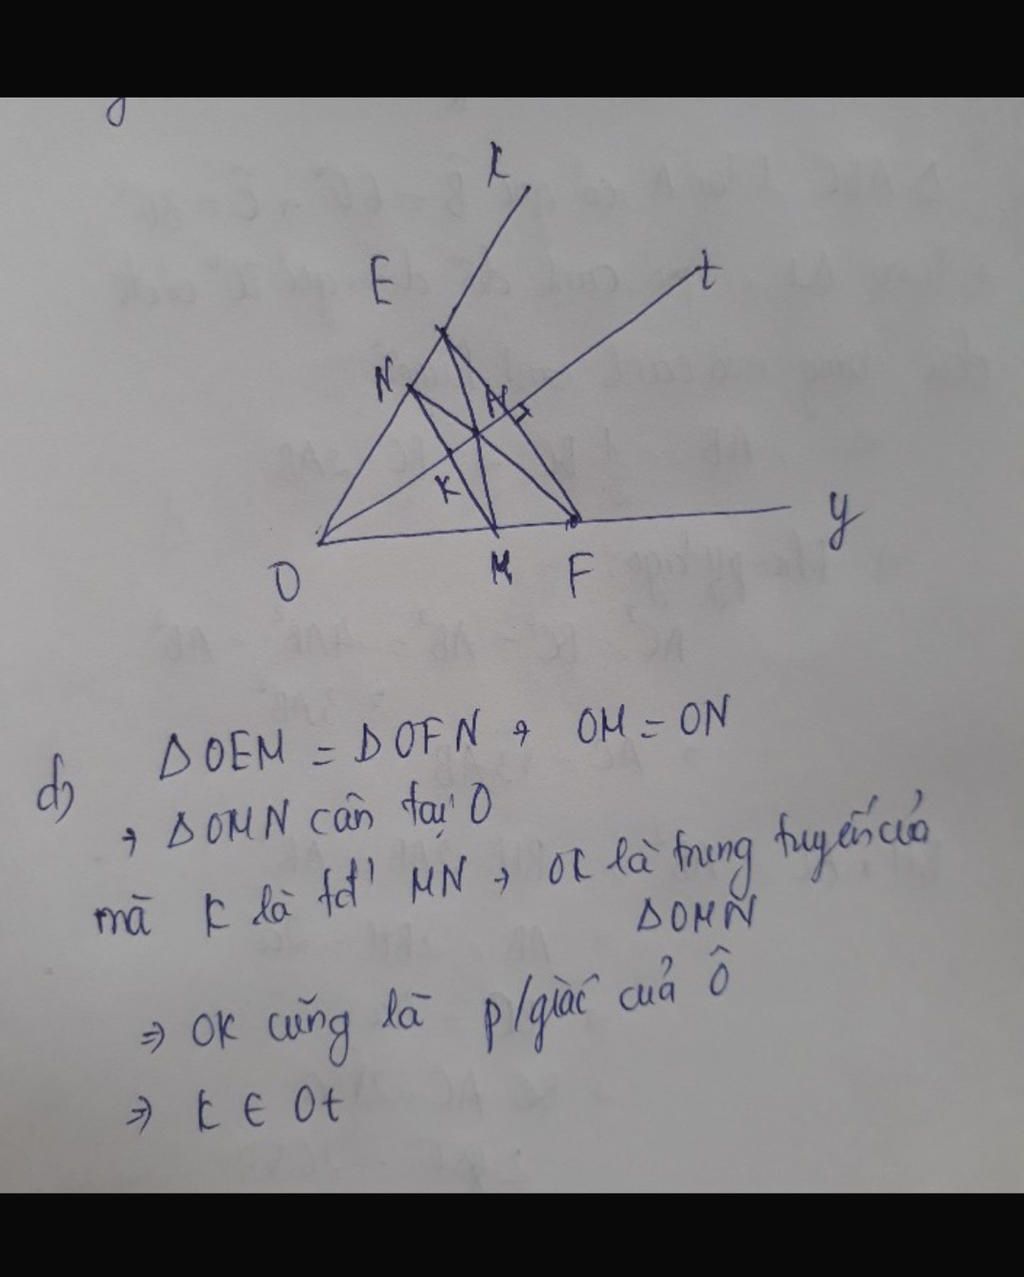 x
E
t
N
H
K
y
O
M
F
d) ΔOEM = ΔOFN → OM = ON
→ ΔOMN cân tại O
mà K là tđ' MN → OK là trung tuyến của
ΔOMN
⇒ OK cũng là p/giác của Ô
⇒ K ∈ Ot